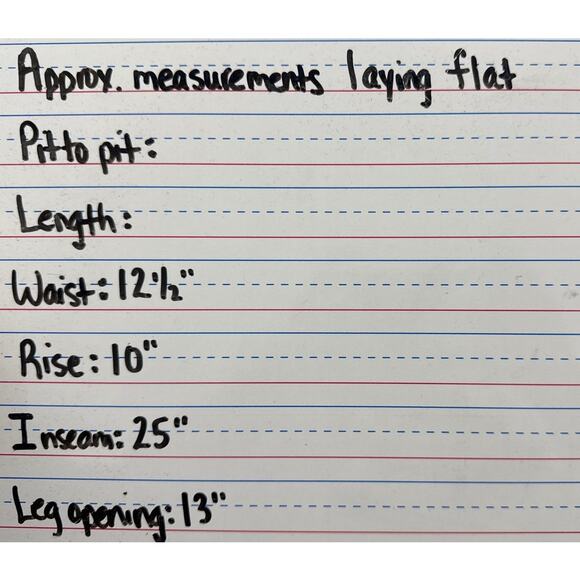 Approx. measurements laying flat
Pit to pit:
Length:
Waist: 12 1/2"
Rise: 10"
Inseam: 25"
Leg opening: 13"